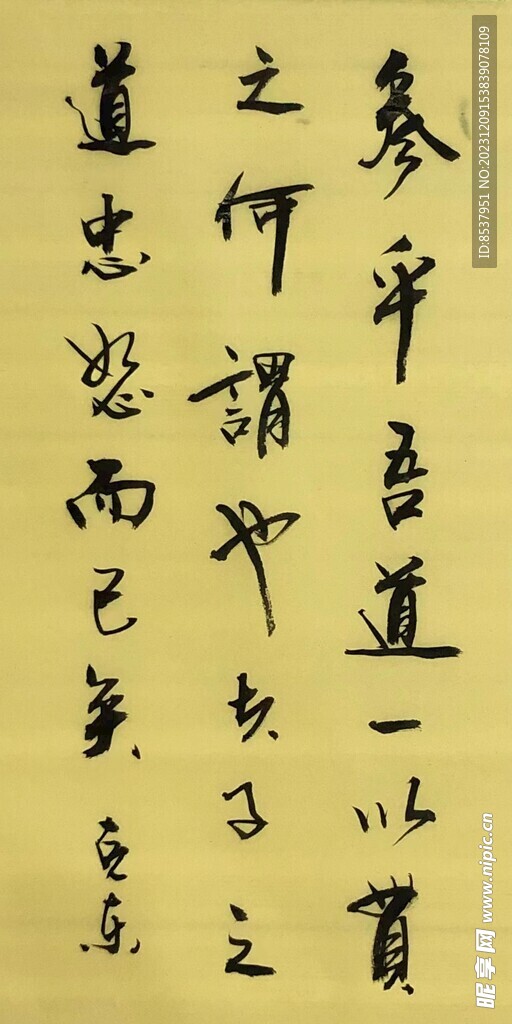 參乎吾道一以貫
之何謂也夫子之
道忠恕而已矣
克東
ID:8537951 NO:20231209153839078109
昵享网 www.nipic.cn